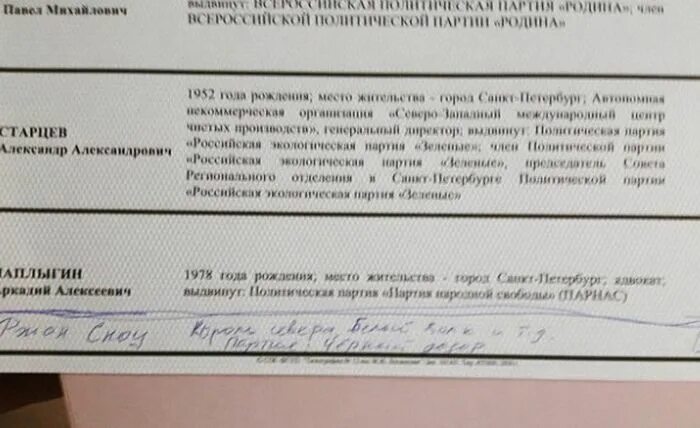 Павел Михайлович
выдвинут: ВСЕРОССИЙСКАЯ ПОЛИТИЧЕСКАЯ ПАРТИЯ «РОДИНА»; член
ВСЕРОССИЙСКОЙ ПОЛИТИЧЕСКОЙ ПАРТИИ «РОДИНА»
СТАРЦЕВ
Александр Александрович
1952 года рождения; место жительства - город Санкт-Петербург; Автономная
некоммерческая организация «Северо-Западный международный центр
чистых производств», генеральный директор; выдвинут: Политическая партия
«Российская экологическая партия «Зеленые»; член Политической партии
«Российская экологическая партия «Зеленые», председатель Совета
Регионального отделения в Санкт-Петербурге Политической партии
«Российская экологическая партия «Зеленые»
ЧАПЛЫГИН
Аркадий Алексеевич
1978 года рождения; место жительства - город Санкт-Петербург; адвокат;
выдвинут: Политическая партия «Партия народной свободы» (ПАРНАС)
Джон Сноу
Король севера, Белый Волк и т.д.
Партия: Чёрный дозор